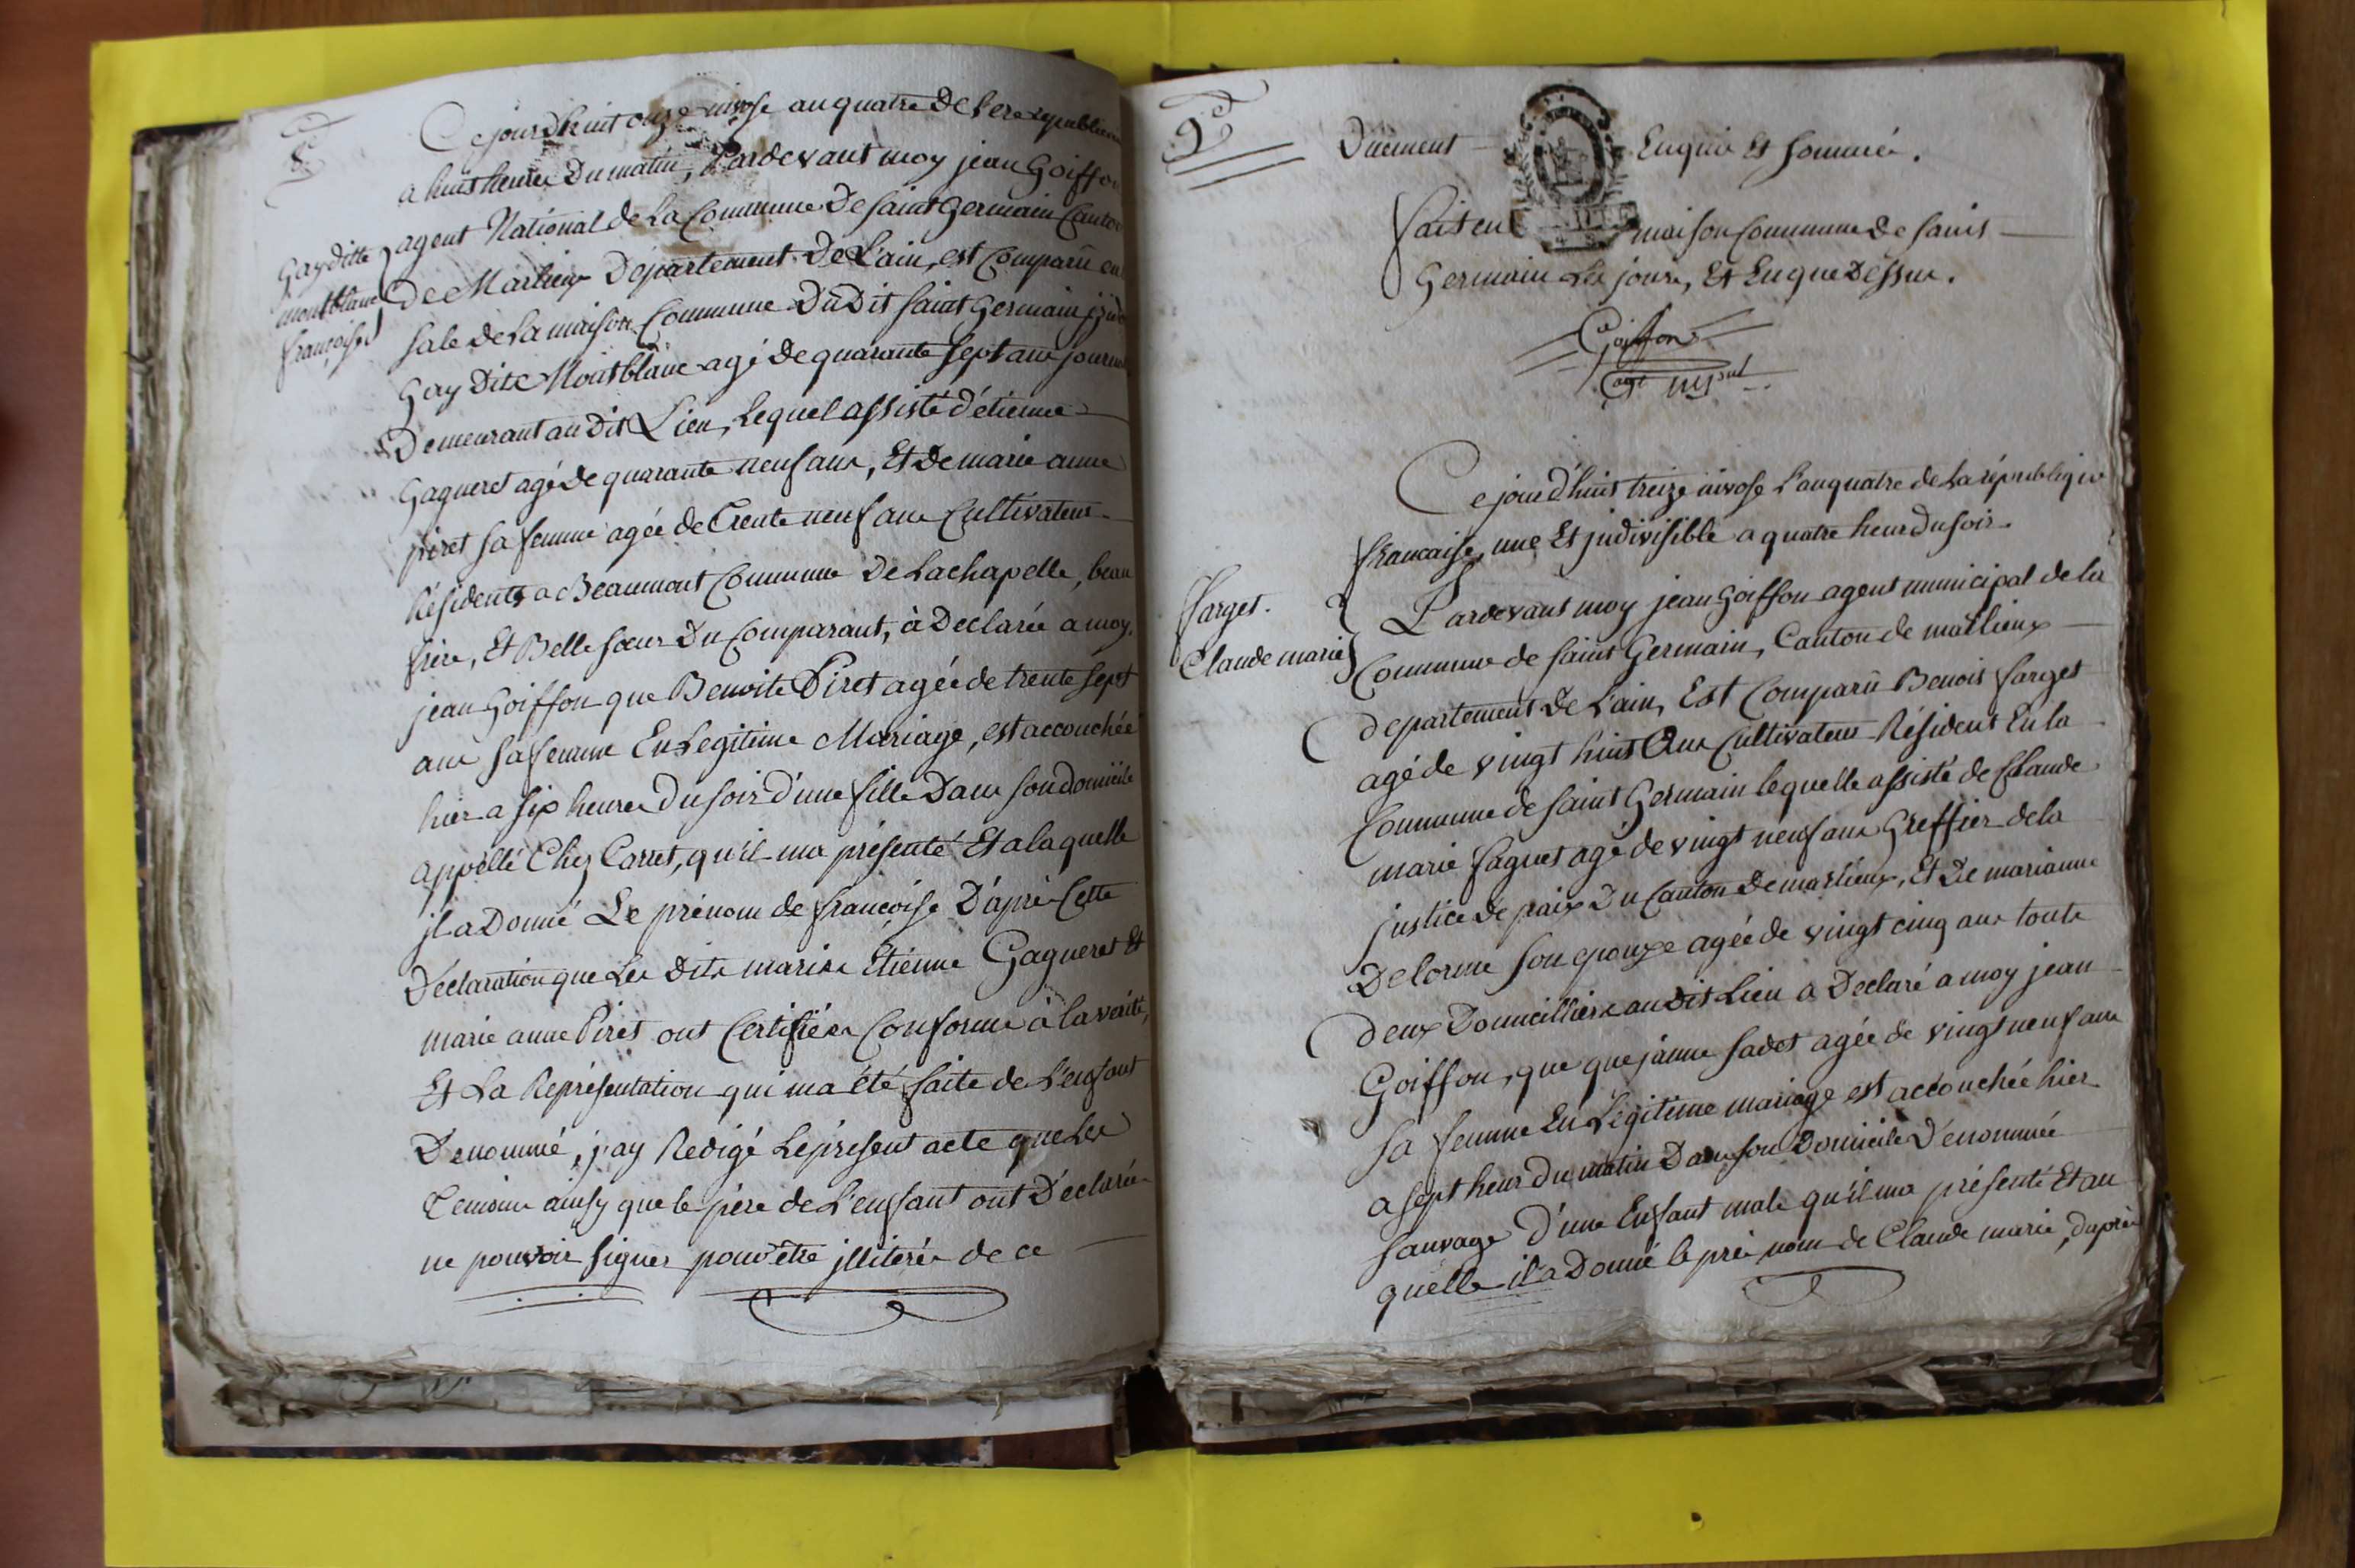 8
Ce jourdhuit onze nivose an quatre De l'ere republicaine
a huit heures Du matin, Pardevant moy jean Goiffon
agent National de La Commune De saint Germain Canton
Gay ditte
montblanc
françoise
De Marlieux Departement De L'ain, est Comparû en
sale de La maison Commune Du Dit saint Germain
Gay Dite Montblanc agé de quarante sept ans journ
Demeurant au Dit Lieu, Lequel assisté d'étienne
Gagneret agé de quarante neuf ans, Et de marie anne
piret sa femme agée de trente neuf ans Cultivateurs
Résidents a Beaumont Commune De Lachapelle, beau
frère, Et Belle sœur Du Comparant, à Declarée a moy
jean Goiffon que Benoite Piret agée de trente sept
ans sa femme En Legitime Mariage, est accouchée
hier a six heures Du soir d'une fille Dans son domicile
appellé Chez Carret, qu'il ma présenté Et a laquelle
jl a Donné Le prénom de françoise D'aprés Cette
Déclaration que Les Dits maries Etienne Gagneret Et
marie anne Piret ont Certifiés Conforme à la vérité,
Et La Représentation qui ma été faite de L'enfant
Denommé, j'ay Redigé Le présent acte que Les
Temoins ainsy que le père de L'enfant ont Déclarés
ne pouvoir signer pour être jlliterés de ce
9
Duement Enquis Et sommés.
fait en maison Commune de saint
Germain Les jours, Et En que Dessus.
Goiffon
agt mpal
Ce jourd'huit treize nivose L'an quatre de La république
francaise, une Et jndivisible a quatre heur du soir.
farget.
Claude marie
Pardevant moy jean Goiffon agent municipal de la
Commune de saint Germain, Canton de marlieux
departement De L'ain, Est Comparû Benois farget
agé de vingt huit Ans Cultivateur Résident En la
Commune de saint Germain lequelle assisté de Claude
marie faguet agé de vingt neuf ans Greffier de la
justice de paix Du Canton De marlieux, Et De marianne
Delorme son epouze agée de vingt cinq ans touts
deux Domicilliers au dit Lieu a Declaré a moy jean
Goiffon, que que janne sadet agée de vingt neuf ans
sa femme En Légitime mariage est accouchée hier
a sept heur du matin Dans son Domicile Denommée
sauvage D'une Enfant male qu'il ma présenté Et au
quelle il a Donné le pré nom de Claude marie, daprès